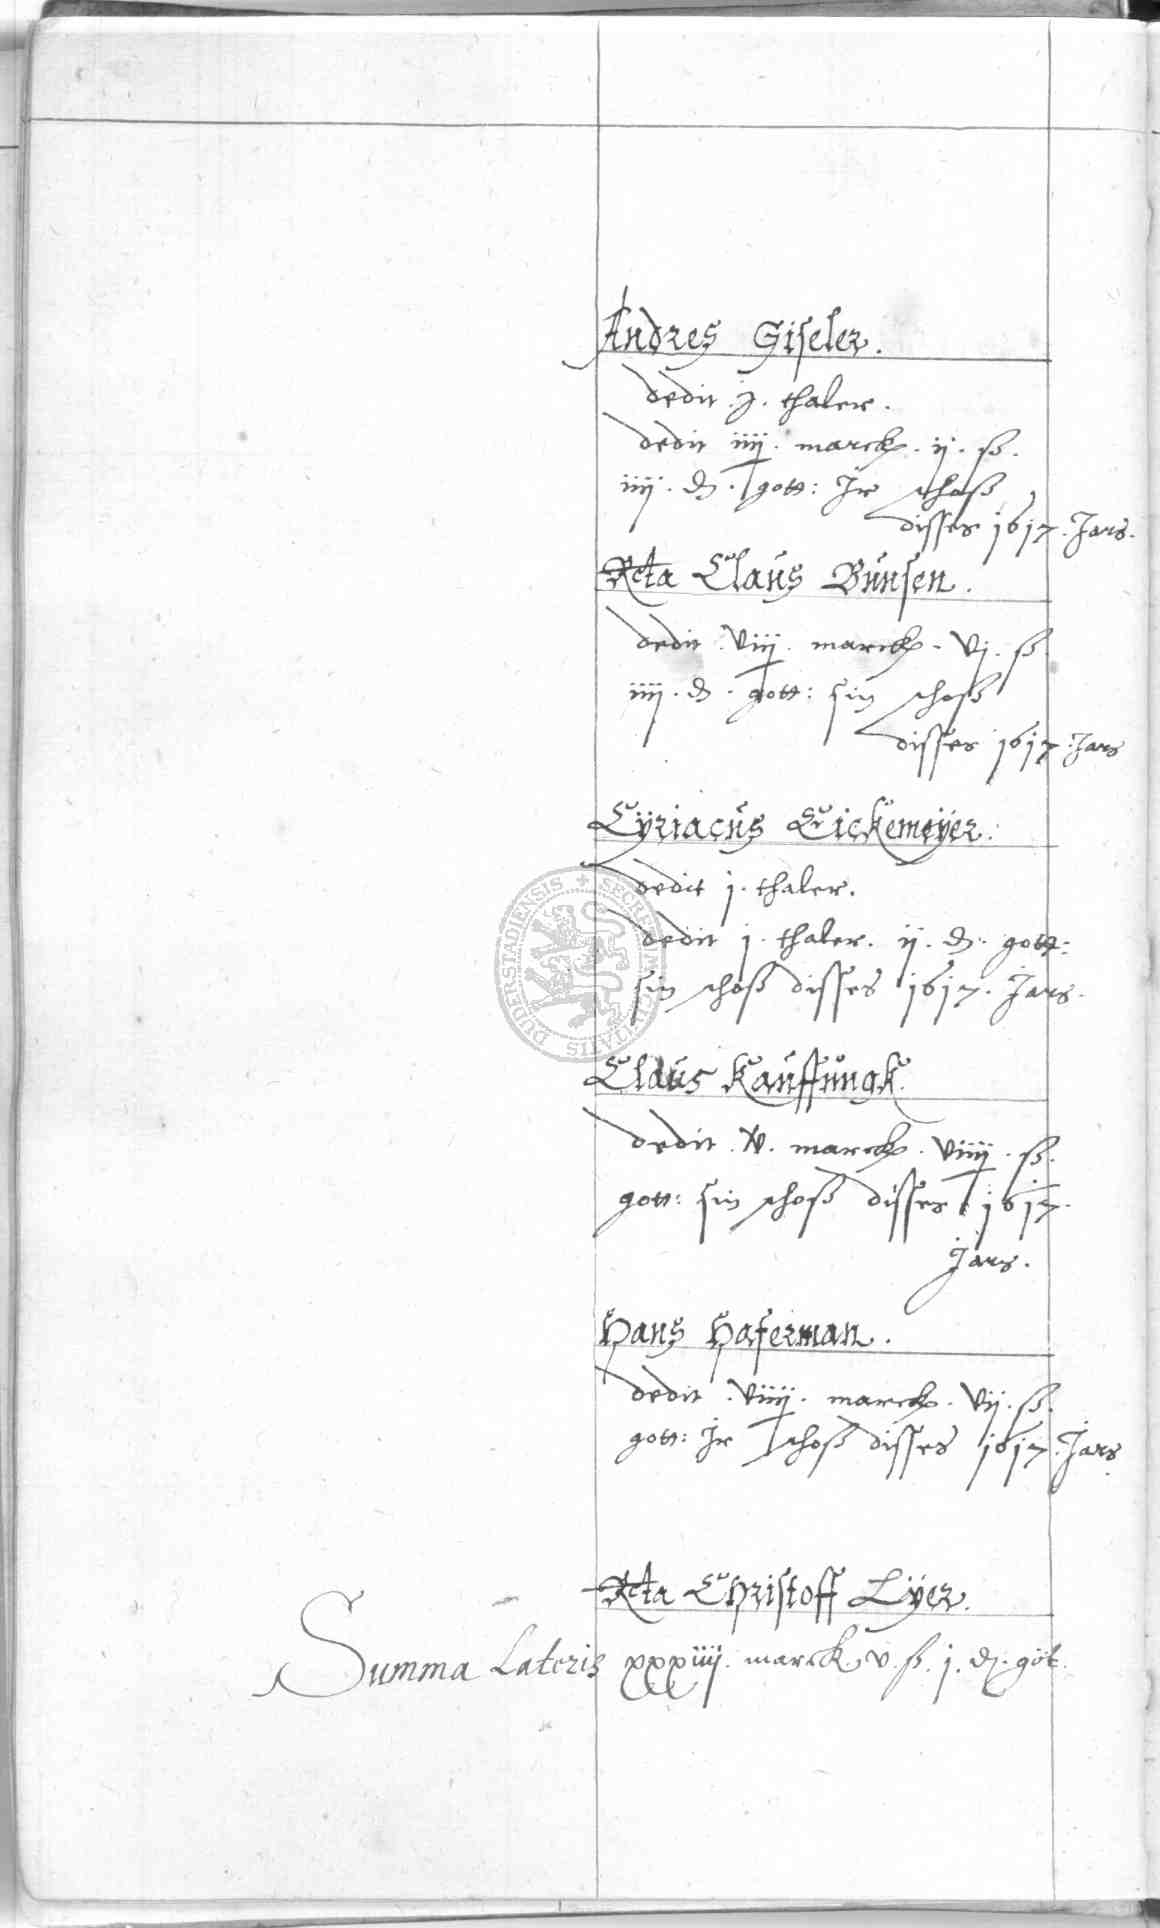 Andres Giseler.
dedit j. thaler.
dedit iiij. marck. ij. ß.
iiij. d. gott: Jr schoß
disses 1617. Jars.
Rcta Claus Bunsen.
dedit viij. marck. vj. ß.
iiij. d. gott: sin schoß
disses 1617. Jars
Cÿriacus Eickemeÿer.
dedit j. thaler.
dedit j. thaler. ij. d. gott:
sin schoß disses 1617. Jars.
DUDERSTADIENSIS + SECRETUM CIVITATIS
Claus Kauffungk.
dedit v. marck. viiij. ß.
gott: sin schoß disses 1617.
Jars.
Hans Haferman.
dedit viiij. marck. vij. ß.
gott: Jr schoß disses 1617. Jars
Rcta Christoff Lÿer.
Summa Lateris xxxiiij. marck. v. ß. j. d. gött.